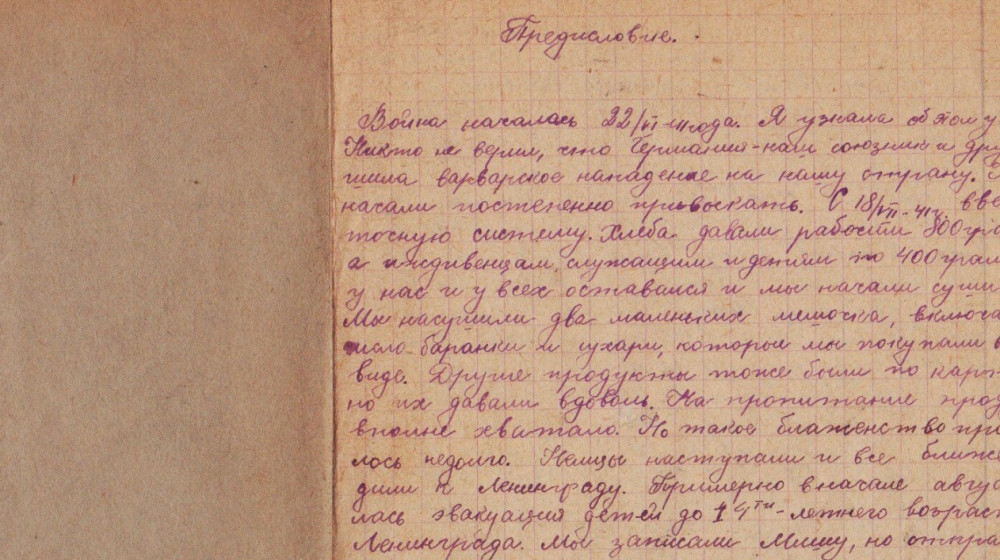 Предисловие.
Война началась 22/VI-41 года. Я узнала об этом у
Никто не верил, что Германия-наш союзник и дру
шила варварское нападение на нашу страну.
начали постепенно привыкать. С 18/VII-41г. вве
точную систему. Хлеба давали рабочим 800 гра
а иждивенцам, служащим и детям по 400 грам
у нас и у всех оставался и мы начали суши
Мы насушили два маленьких мешочка, включа
баранки и сухари, которые мы покупали в
виде. Другие продукты тоже были по карт
но их давали вдоволь. На пропитание прод
вполне хватало. Но такое блаженство про
лось недолго. Немцы наступали и все ближе
дили к Ленинграду. Примерно вначале авгус
лась эвакуация детей до 14ти-летнего возраст
Ленинграда. Мы записали Мишу, но отпра